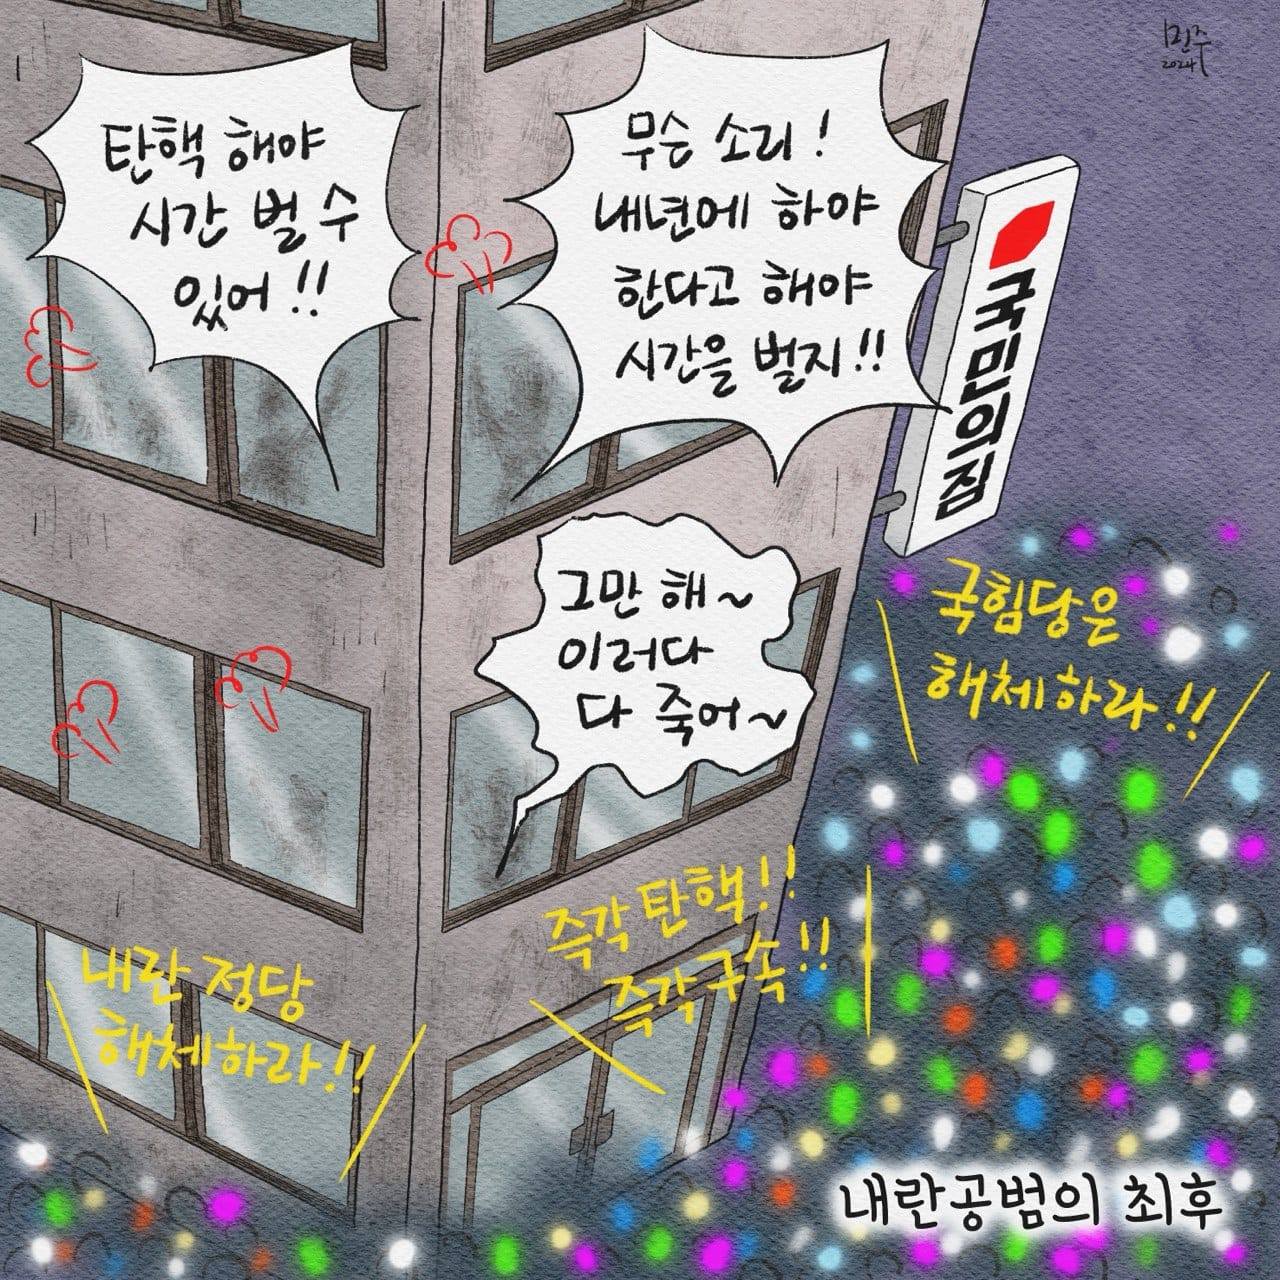 민주
2024
탄핵 해야
시간 벌 수
있어!!
무슨 소리!
내년에 하야
한다고 해야
시간을 벌지!!
국민의짐
그만 해~
이러다
다 죽어~
국힘당은
해체하라!!
즉각 탄핵!!
즉각구속!!
내란 정당
해체하라!!
내란공범의 최후